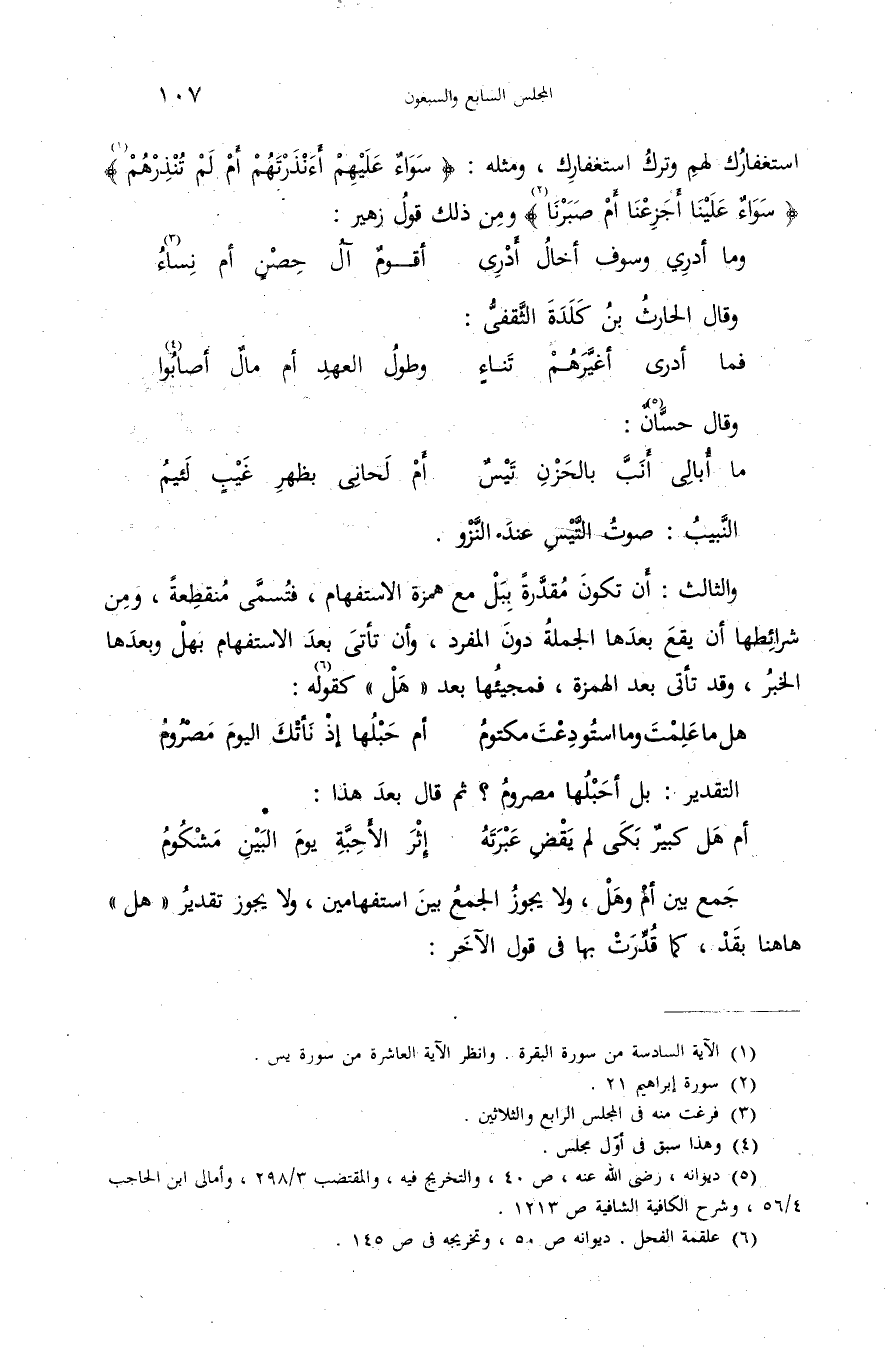 المجلس السابع والسبعون ١٠٧
استغفارُك لهم وتركُ استغفارِك ، ومثله : ﴿ سَوَاءٌ عَلَيْهِمْ أَءَنْذَرْتَهُمْ أَمْ لَمْ تُنْذِرْهُمْ ﴾(١)
﴿ سَوَاءٌ عَلَيْنَا أَجَزِعْنَا أَمْ صَبَرْنَا(٢) ﴾ ومِن ذلك قولُ زهير :
وما أدرِي وسوف أخالُ أَدْرِى أقــومٌ آلُ حِصْنٍ أم نِساءُ(٣)
وقال الحارثُ بنُ كَلَدَةَ الثَّقفىُّ :
فما أدرى أغيَّرَهُـمْ تَنـاءٍ وطولُ العهدِ أم مالٌ أصابُوا(٤)
وقال حسَّانٌ(٥) :
ما أُبالِى أَنَبَّ بالحَزْنِ تَيْسٌ أَمْ لَحانِى بظهرِ غَيْبٍ لَئيمُ
النَّبيبُ : صوتُ التَّيْسِ عندَ النَّزْو .
والثالث : أَن تكونَ مُقدَّرةً بِبَلْ مع همزة الاستفهام ، فتُسمَّى مُنقطِعةً ، ومِن
شرائِطها أن يقعَ بعدَها الجملةُ دونَ المفرد ، وأن تأتىَ بعدَ الاستفهام بهلْ وبعدَها
الخبرُ ، وقد تأتى بعد الهمزة ، فمجيئُها بعد « هَلْ » كقوله(٦) :
هل ما عَلِمْتَ وما استُودِعْتَ مكتومُ أم حَبْلُها إذْ نَأتْكَ اليومَ مَصْرُومُ
التقدير : بل أحَبْلُها مصرومُ ؟ ثم قال بعدَ هذا :
أم هَل كبيرٌ بَكَى لم يَقْضِ عَبْرَتَهُ إِثْرَ الأَحِبَّةِ يومَ البَيْنِ مَشْكُومُ
جَمع بين أمْ وهَلْ ، ولا يجوزُ الجمعُ بينَ استفهامين ، ولا يجوز تقديرُ « هل »
هاهنا بقَدْ ، كما قُدِّرَتْ بها فى قول الآخَر :
(١) الآية السادسة من سورة البقرة . وانظر الآية العاشرة من سورة يس .
(٢) سورة إبراهيم ٢١ .
(٣) فرغت منه فى المجلس الرابع والثلاثين .
(٤) وهذا سبق فى أوّل مجلس .
(٥) ديوانه ، رضى الله عنه ، ص ٤٠ ، والتخريج فيه ، والمقتضب ٢٩٨/٣ ، وأمالى ابن الحاجب
٥٦/٤ ، وشرح الكافية الشافية ص ١٢١٣ .
(٦) علقمة الفحل . ديوانه ص ٥٠ ، وتخريجه فى ص ١٤٥ .